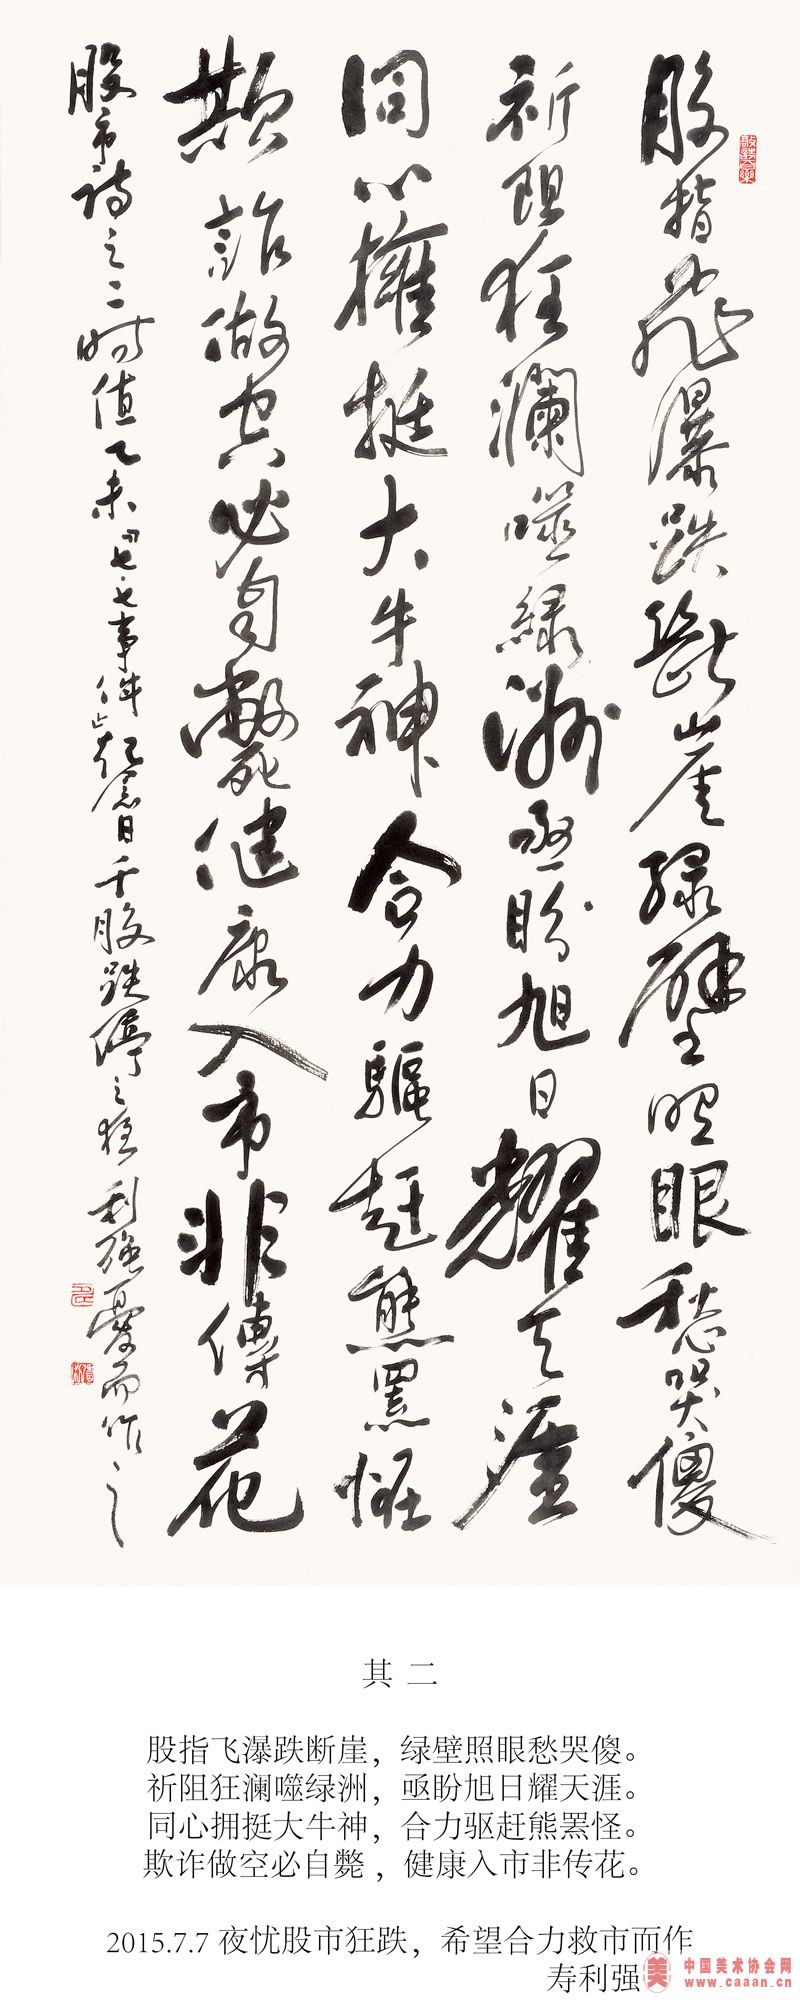 股指飛瀑跌斷崖綠壁照眼愁哭傻
祈阻狂瀾噬綠洲亟盼旭日耀天涯
同心擁挺大牛神合力驅趕熊罴怪
欺詐做空必自斃健康入市非傳花
股市詩之二時值乙未『七·七事件』紀念日千股跌停之夜利強憂而作之
其二
股指飞瀑跌断崖，绿壁照眼愁哭傻。
祈阻狂澜噬绿洲，亟盼旭日耀天涯。
同心拥挺大牛神，合力驱赶熊罴怪。
欺诈做空必自毙，健康入市非传花。
2015.7.7 夜忧股市狂跌，希望合力救市而作
寿利强
美 中国美术协会网
www.caaan.cn